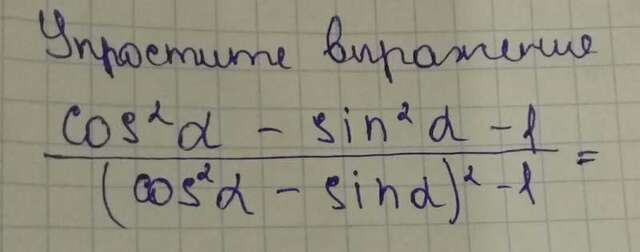 Упростите выражение
cos²α - sin²α - 1
(cos²α - sinα)² - 1 =